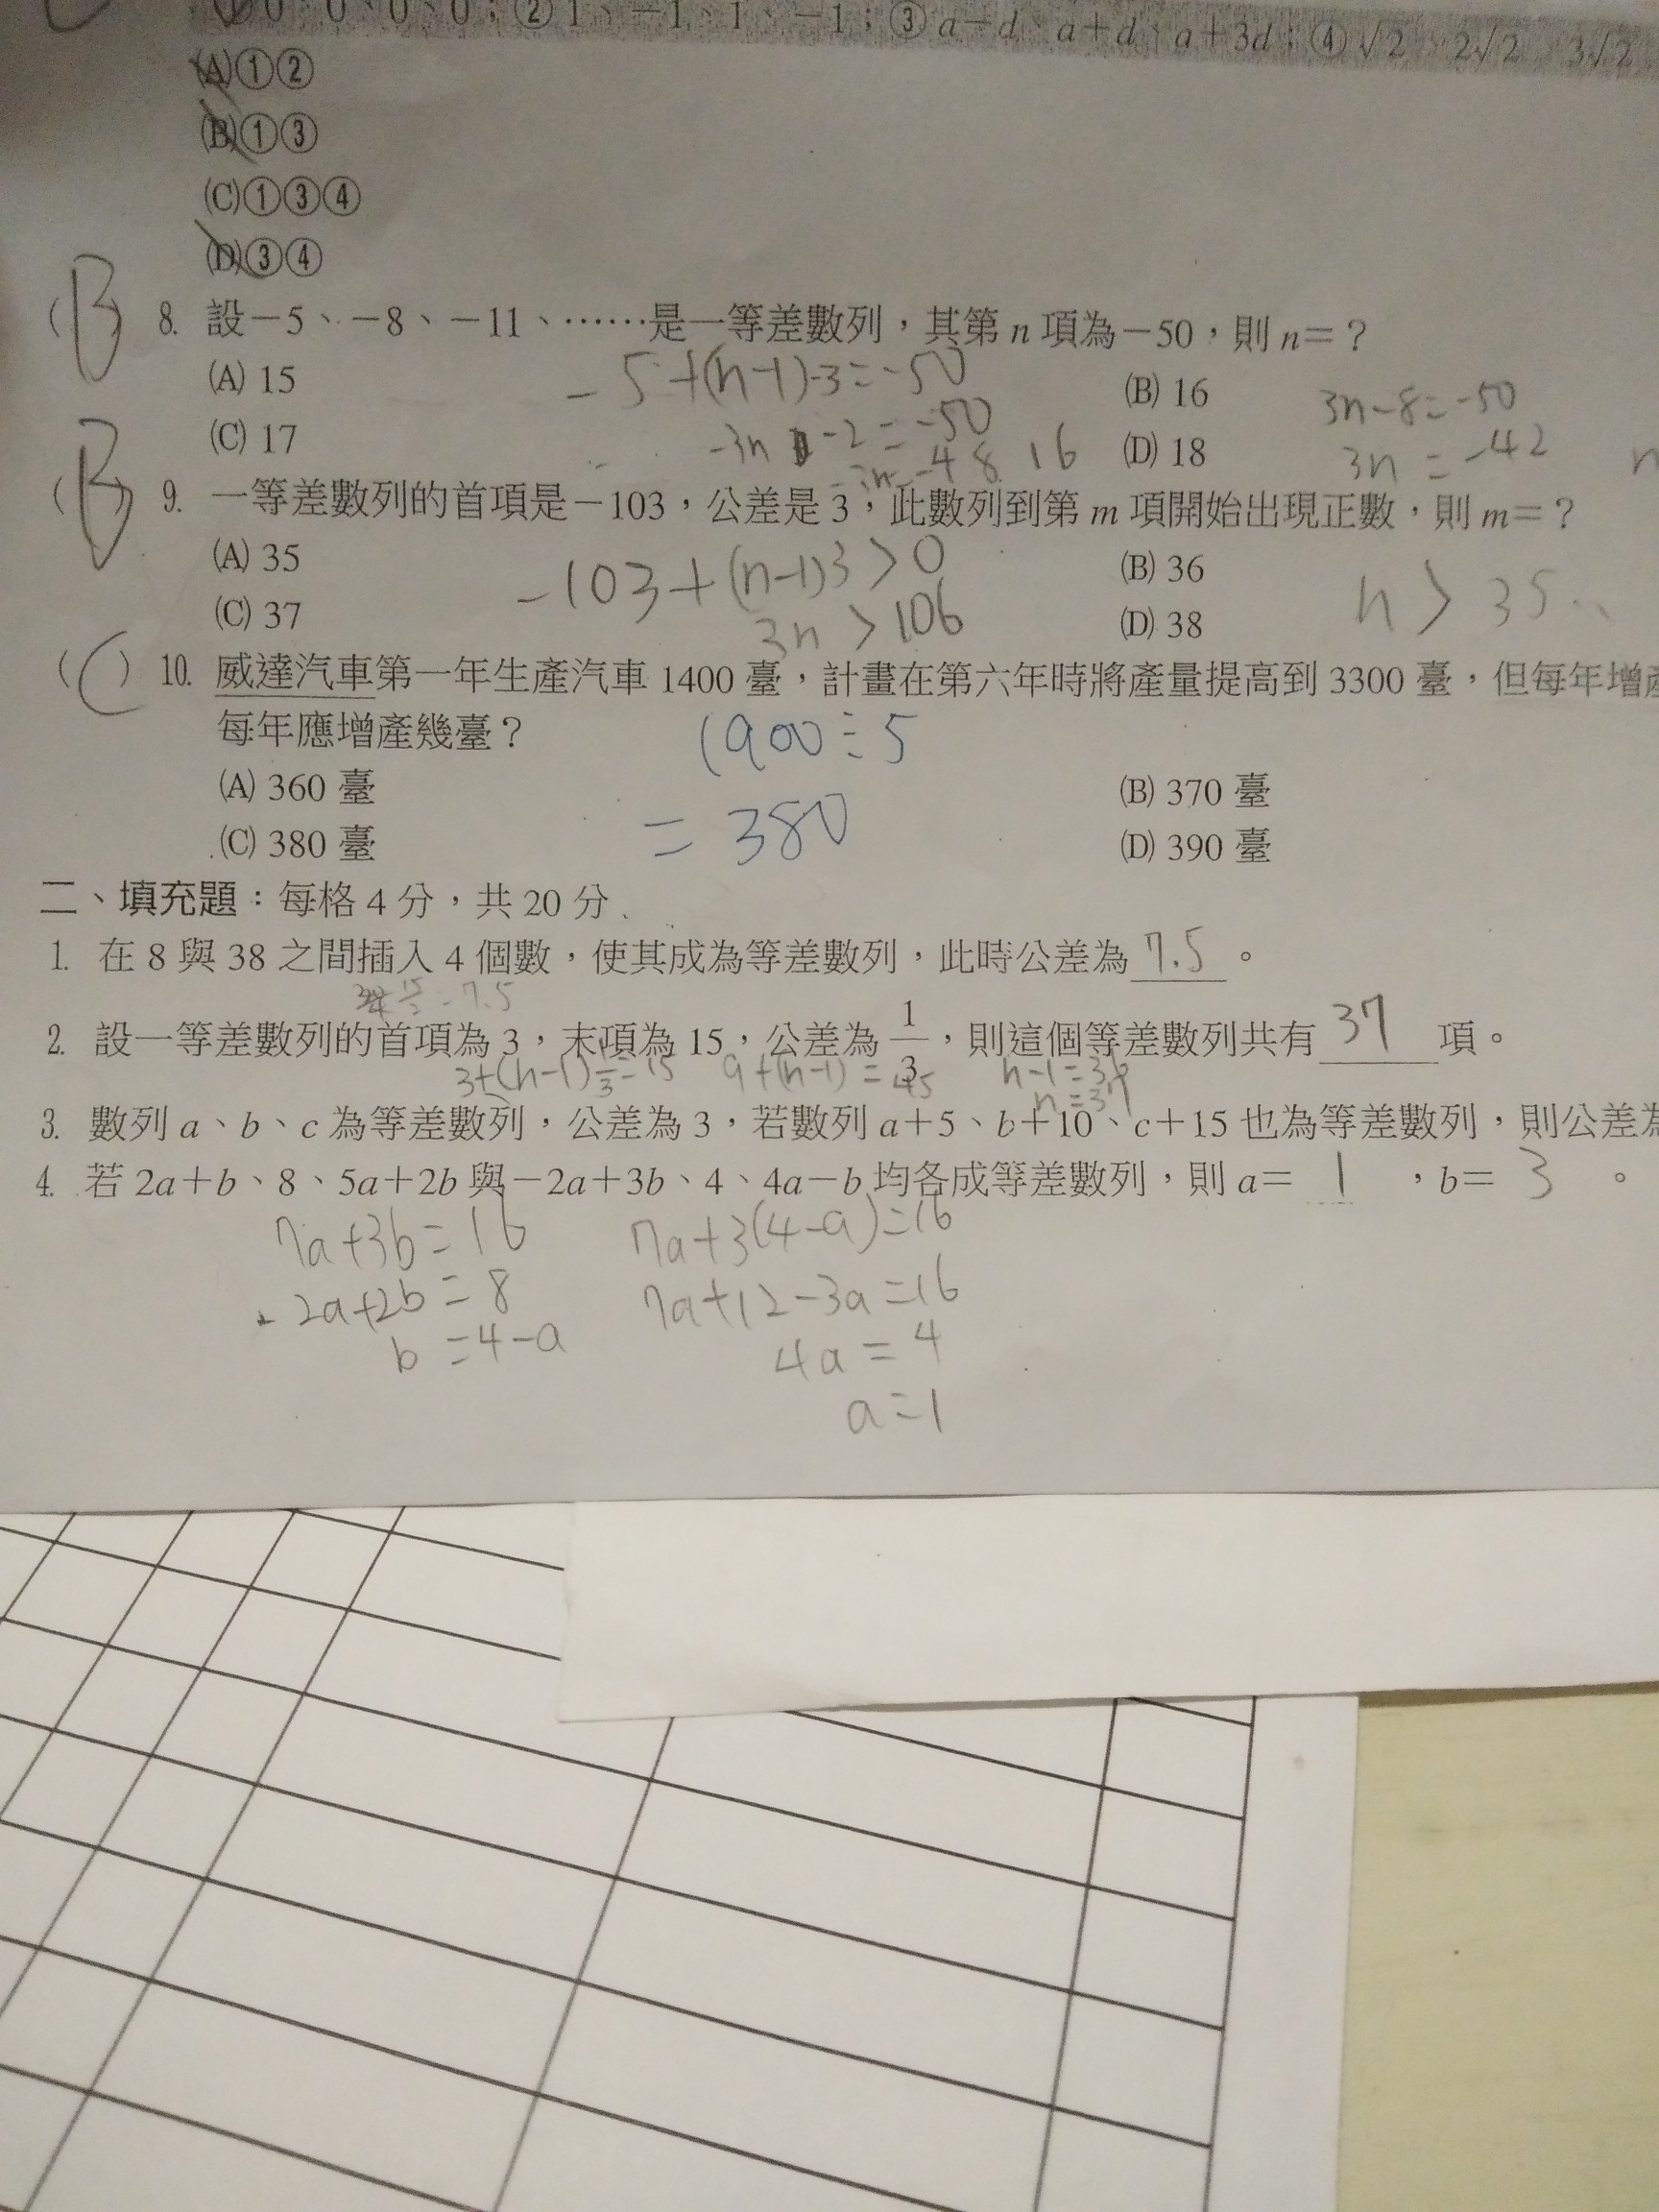 ①0、0、0、0；②1、－1、1、－1；③a－d、a＋d、a＋3d；④√2、2√2、3√2
(A)①②
(B)①③
(C)①③④
(D)③④
(B) 8. 設－5、－8、－11、……是一等差數列，其第 n 項為－50，則 n＝？
(A) 15
-5+(n-1)·-3=-50
(B) 16
3n-8=-50
(C) 17
-3n -2=-50
-48 16
(D) 18
3n=-42
(B) 9. 一等差數列的首項是－103，公差是 3，此數列到第 m 項開始出現正數，則 m＝？
(A) 35
-103+(n-1)3>0
(B) 36
n>35..
(C) 37
3n>106
(D) 38
(C) 10. 威達汽車第一年生產汽車 1400 臺，計畫在第六年時將產量提高到 3300 臺，但每年增產
每年應增產幾臺？
1900÷5
(A) 360 臺
(B) 370 臺
=380
(C) 380 臺
(D) 390 臺
二、填充題：每格 4 分，共 20 分
1. 在 8 與 38 之間插入 4 個數，使其成為等差數列，此時公差為 7.5 。
=7.5
2. 設一等差數列的首項為 3，末項為 15，公差為 1/3，則這個等差數列共有 37 項。
3+(n-1)1/3=15 9+(n-1)=45 n-1=36
n=37
3. 數列 a、b、c 為等差數列，公差為 3，若數列 a＋5、b＋10、c＋15 也為等差數列，則公差為
4. 若 2a＋b、8、5a＋2b 與－2a＋3b、4、4a－b 均各成等差數列，則 a＝ 1 ，b＝ 3 。
7a+3b=16 7a+3(4-a)=16
2a+2b=8 7a+12-3a=16
b=4-a 4a=4
a=1